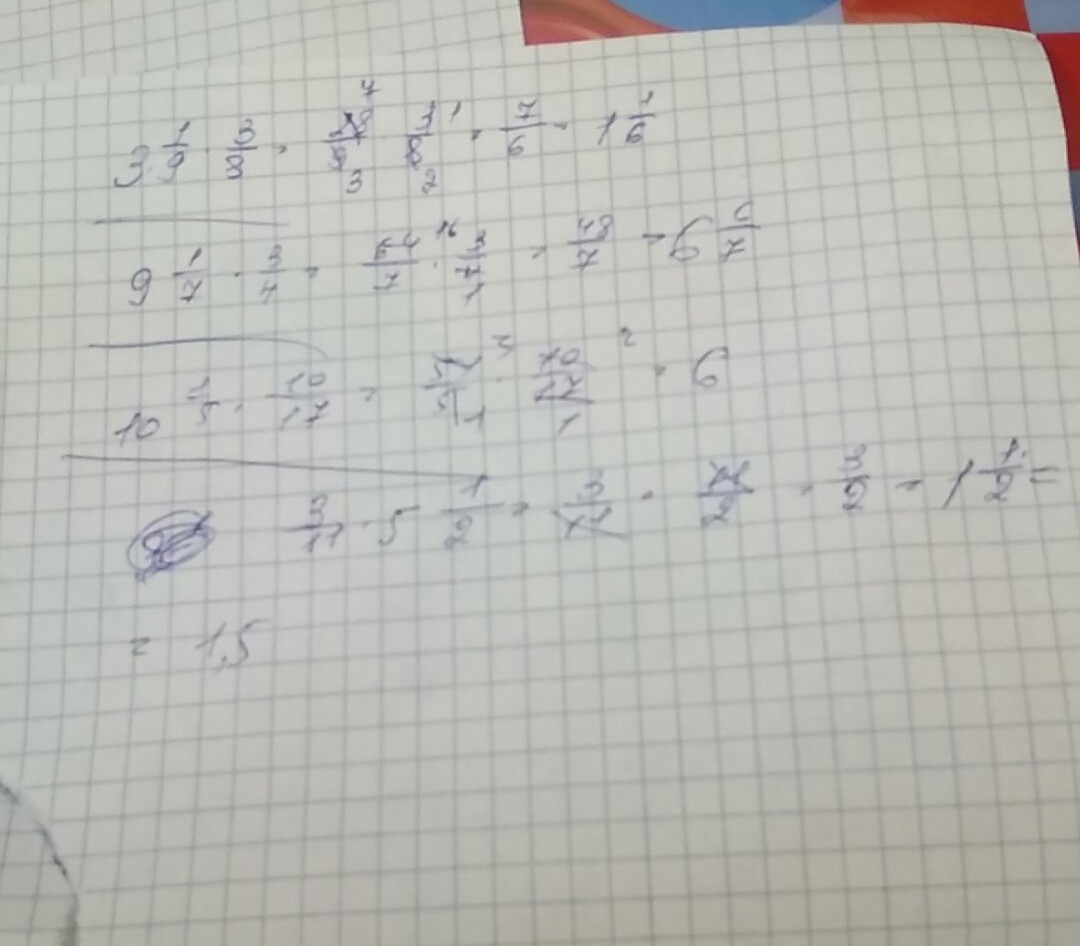 3 1/9 · 3/8 = 28/9 3/8 = 7/6 = 1 1/6
9 1/7 · 3/4 = 64/7 · 3/4 = 48/7 = 6 6/7
10 1/5 · 10/17 = 51/5 · 10/17 = 6
3/11 · 5 1/2 = 3/11 · 11/2 = 3/2 = 1 1/2 =
= 1,5